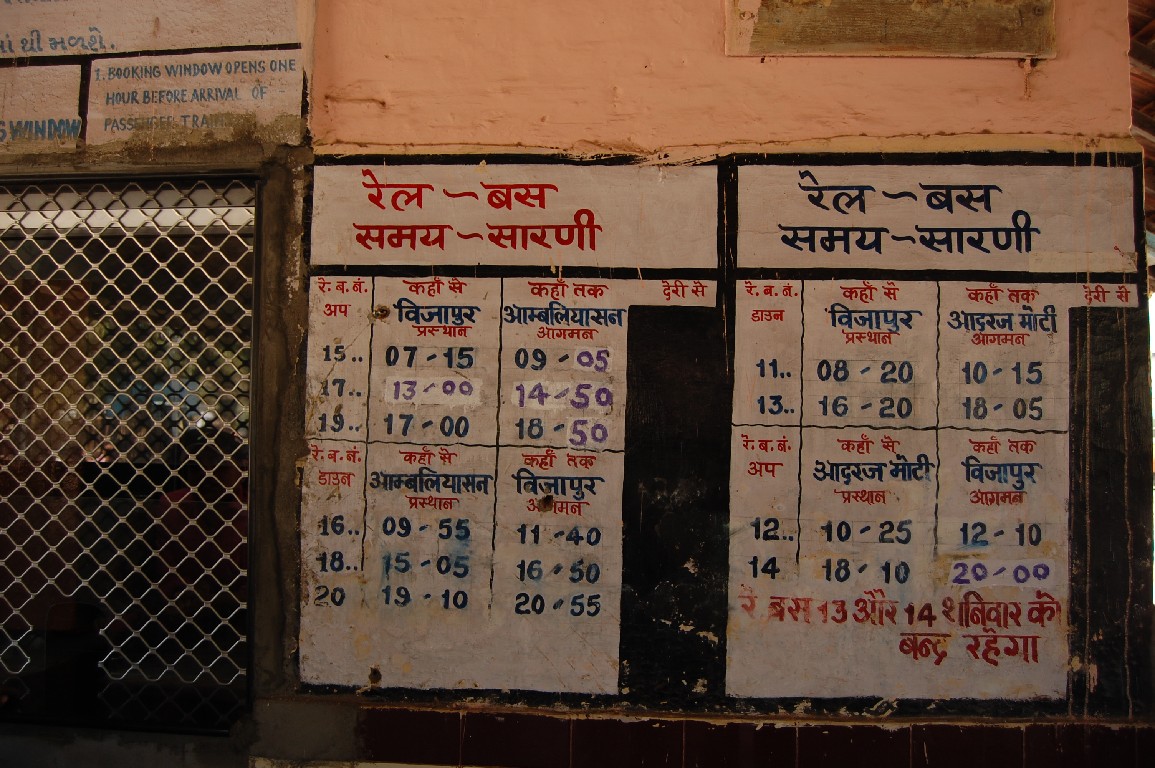 માં થી મળશે.
1. BOOKING WINDOW OPENS ONE
HOUR BEFORE ARRIVAL OF
PASSENGER TRAIN
WINDOW
रेल ~ बस
समय ~ सारणी
रे. ब. नं. कहाँ से कहाँ तक देरी से
अप विजापुर आम्बलियासन
प्रस्थान आगमन
15.. 07-15 09-05
17.. 13-00 14-50
19.. 17-00 18-50
रे. ब. नं. कहाँ से कहाँ तक
डाउन आम्बलियासन विजापुर
प्रस्थान आगमन
16.. 09-55 11-40
18.. 15-05 16-50
20 19-10 20-55
रेल ~ बस
समय ~ सारणी
रे. ब. नं. कहाँ से कहाँ तक देरी से
डाउन विजापुर आदरज मोटी
प्रस्थान आगमन
11.. 08-20 10-15
13.. 16-20 18-05
रे. ब. नं. कहाँ से कहाँ तक
अप आदरज मोटी विजापुर
प्रस्थान आगमन
12.. 10-25 12-10
14 18-10 20-00
रे. बस 13 और 14 शनिवार को
बन्द रहेगा